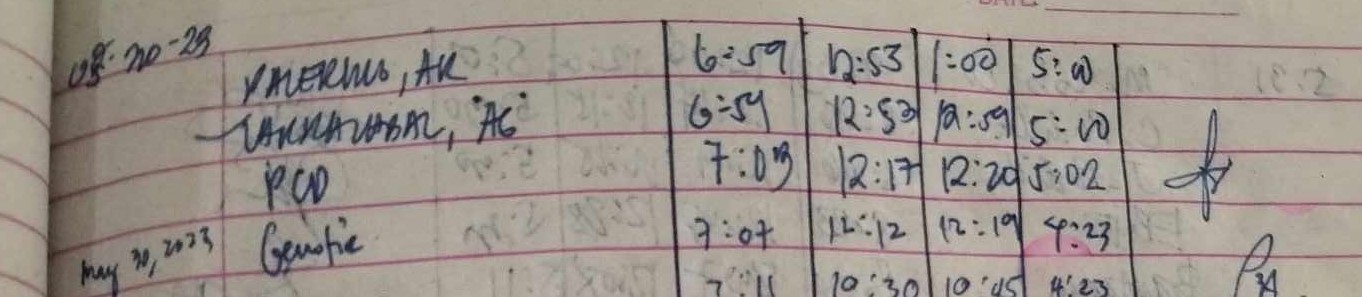 DATE:
05-20-23 VALERIUS, AR 6:59 12:53 1:00 5:00
"AG" 6:59 12:53 12:59 5:00
PCD 7:03 12:17 12:20 5:02
May 30, 2023 7:07 12:12 12:19 4:23
7:11 10:30 10:45 4:23